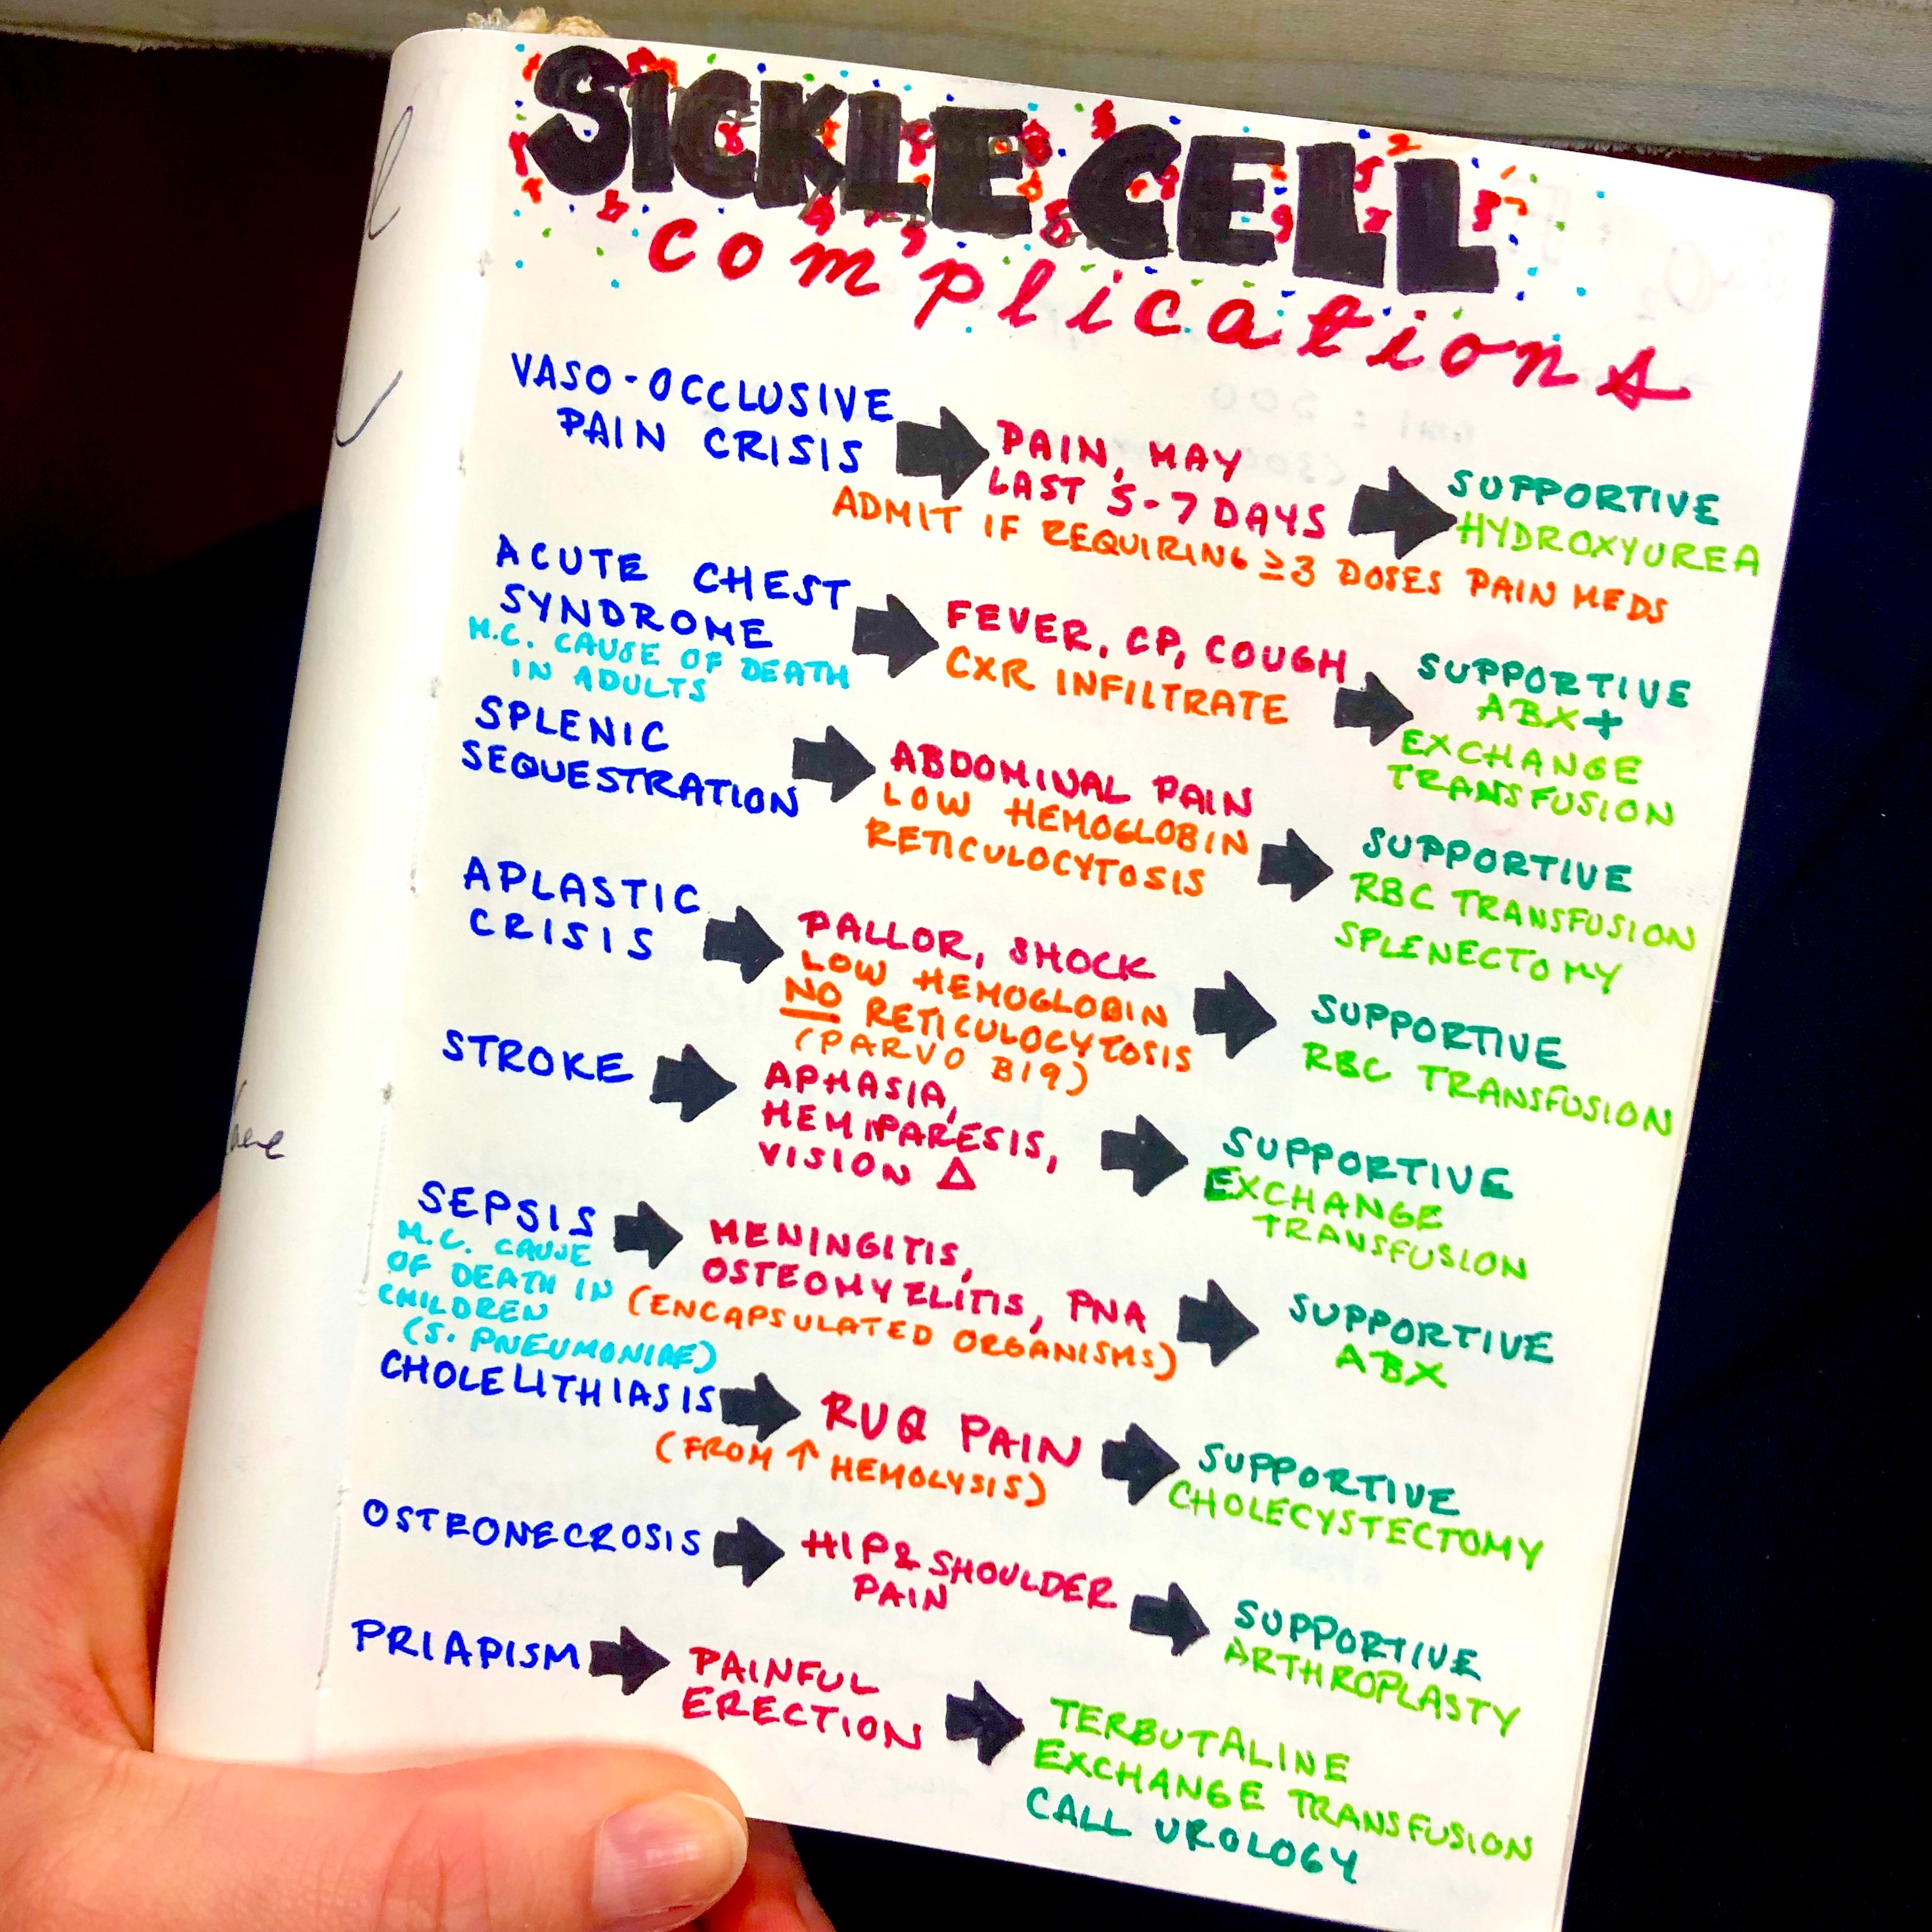 SICKLE CELL
complications
VASO-OCCLUSIVE
PAIN CRISIS
PAIN, MAY
LAST 5-7 DAYS
ADMIT IF REQUIRING ≥3 DOSES PAIN MEDS
SUPPORTIVE
HYDROXYUREA
ACUTE CHEST
SYNDROME
M.C. CAUSE OF DEATH
IN ADULTS
FEVER, CP, COUGH
CXR INFILTRATE
SUPPORTIVE
ABX +
EXCHANGE
TRANSFUSION
SPLENIC
SEQUESTRATION
ABDOMINAL PAIN
LOW HEMOGLOBIN
RETICULOCYTOSIS
SUPPORTIVE
RBC TRANSFUSION
SPLENECTOMY
APLASTIC
CRISIS
PALLOR, SHOCK
LOW HEMOGLOBIN
NO RETICULOCYTOSIS
(PARVO B19)
SUPPORTIVE
RBC TRANSFUSION
STROKE
APHASIA,
HEMIPARESIS,
VISION Δ
SUPPORTIVE
EXCHANGE
TRANSFUSION
SEPSIS
M.C. CAUSE
OF DEATH IN
CHILDREN
(S. PNEUMONIAE)
MENINGITIS,
OSTEOMYELITIS, PNA
(ENCAPSULATED ORGANISMS)
SUPPORTIVE
ABX
CHOLELITHIASIS
RUQ PAIN
(FROM ↑ HEMOLYSIS)
SUPPORTIVE
CHOLECYSTECTOMY
OSTEONECROSIS
HIP & SHOULDER
PAIN
SUPPORTIVE
ARTHROPLASTY
PRIAPISM
PAINFUL
ERECTION
TERBUTALINE
EXCHANGE TRANSFUSION
CALL UROLOGY